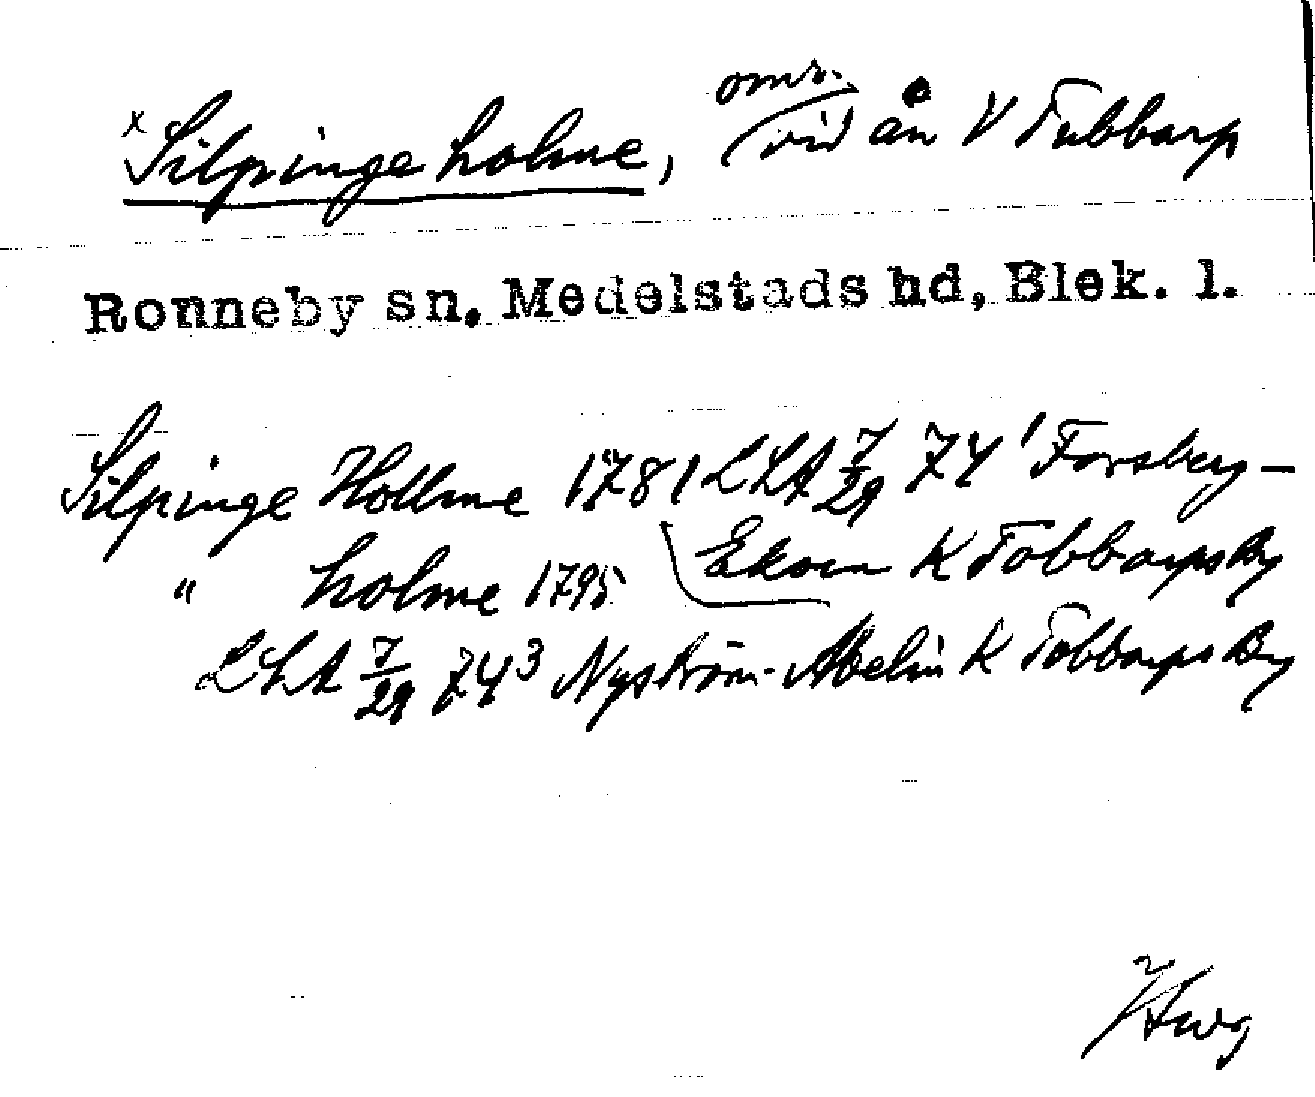 x Silpinge holme, omr. vid ån V Tubbarp
Ronneby sn, Medelstads hd, Blek. l.
Silpinge Hollme 1781 LLA 7/29 74¹ Forsberg-
" holme 1795 Ekorn K Tobbarps By
LLA 7/29 74³ Nyström-Abelin K Tobbarps By